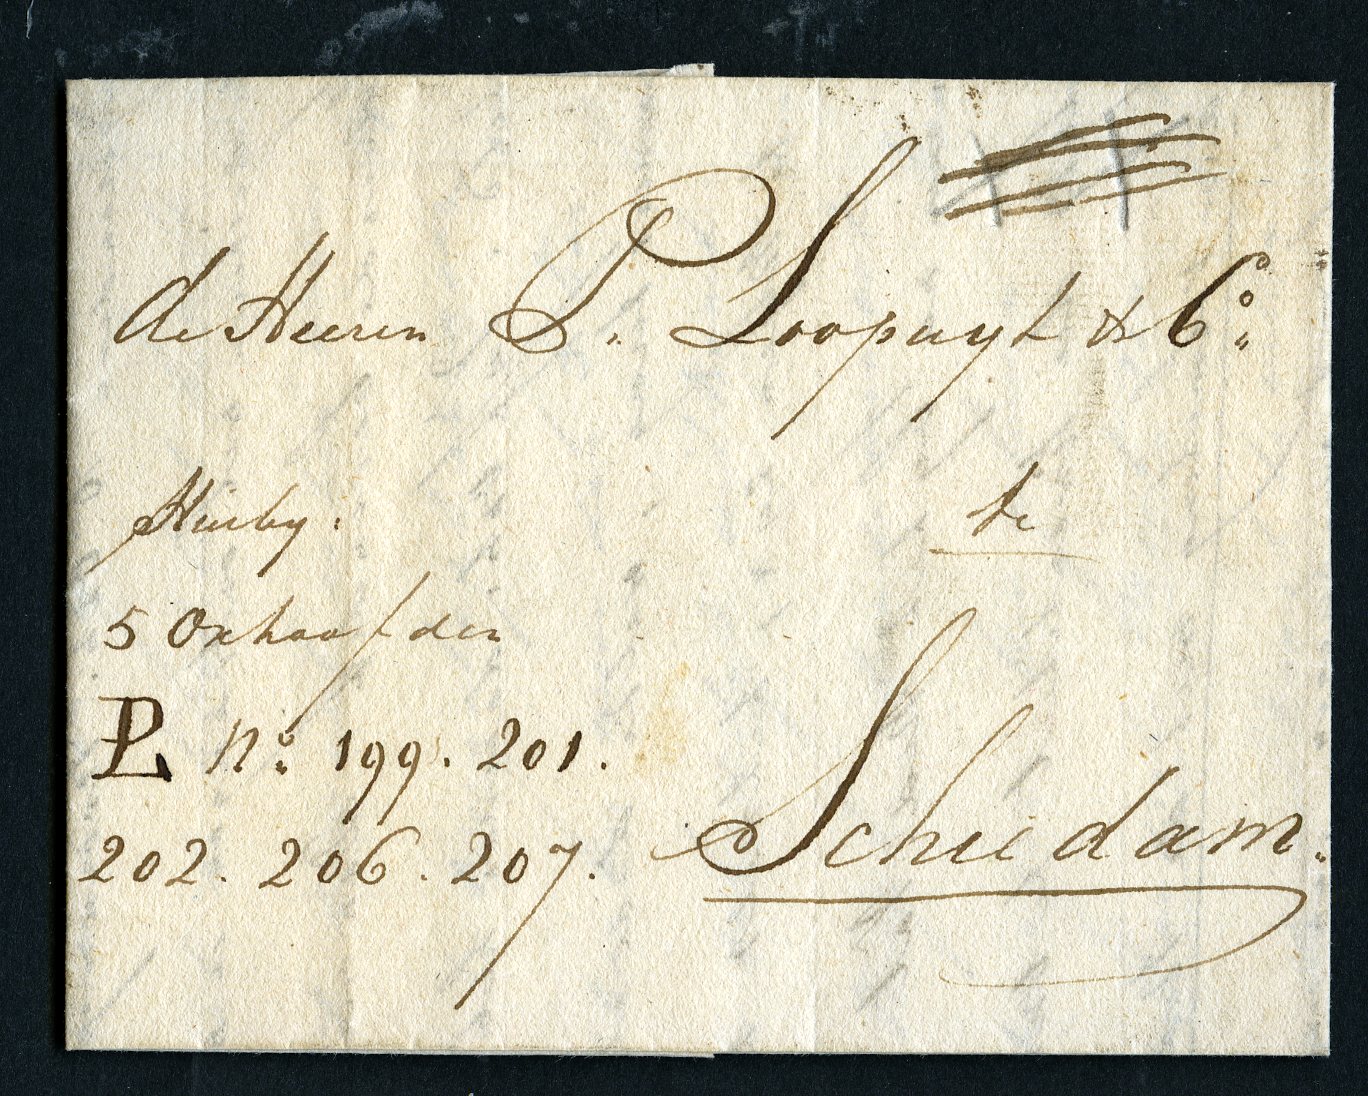 de Heeren P. Loopuyt & Co.
Hierby.
te
5 Oxhoofden
PL No. 199. 201.
202. 206. 207.
Schiedam.